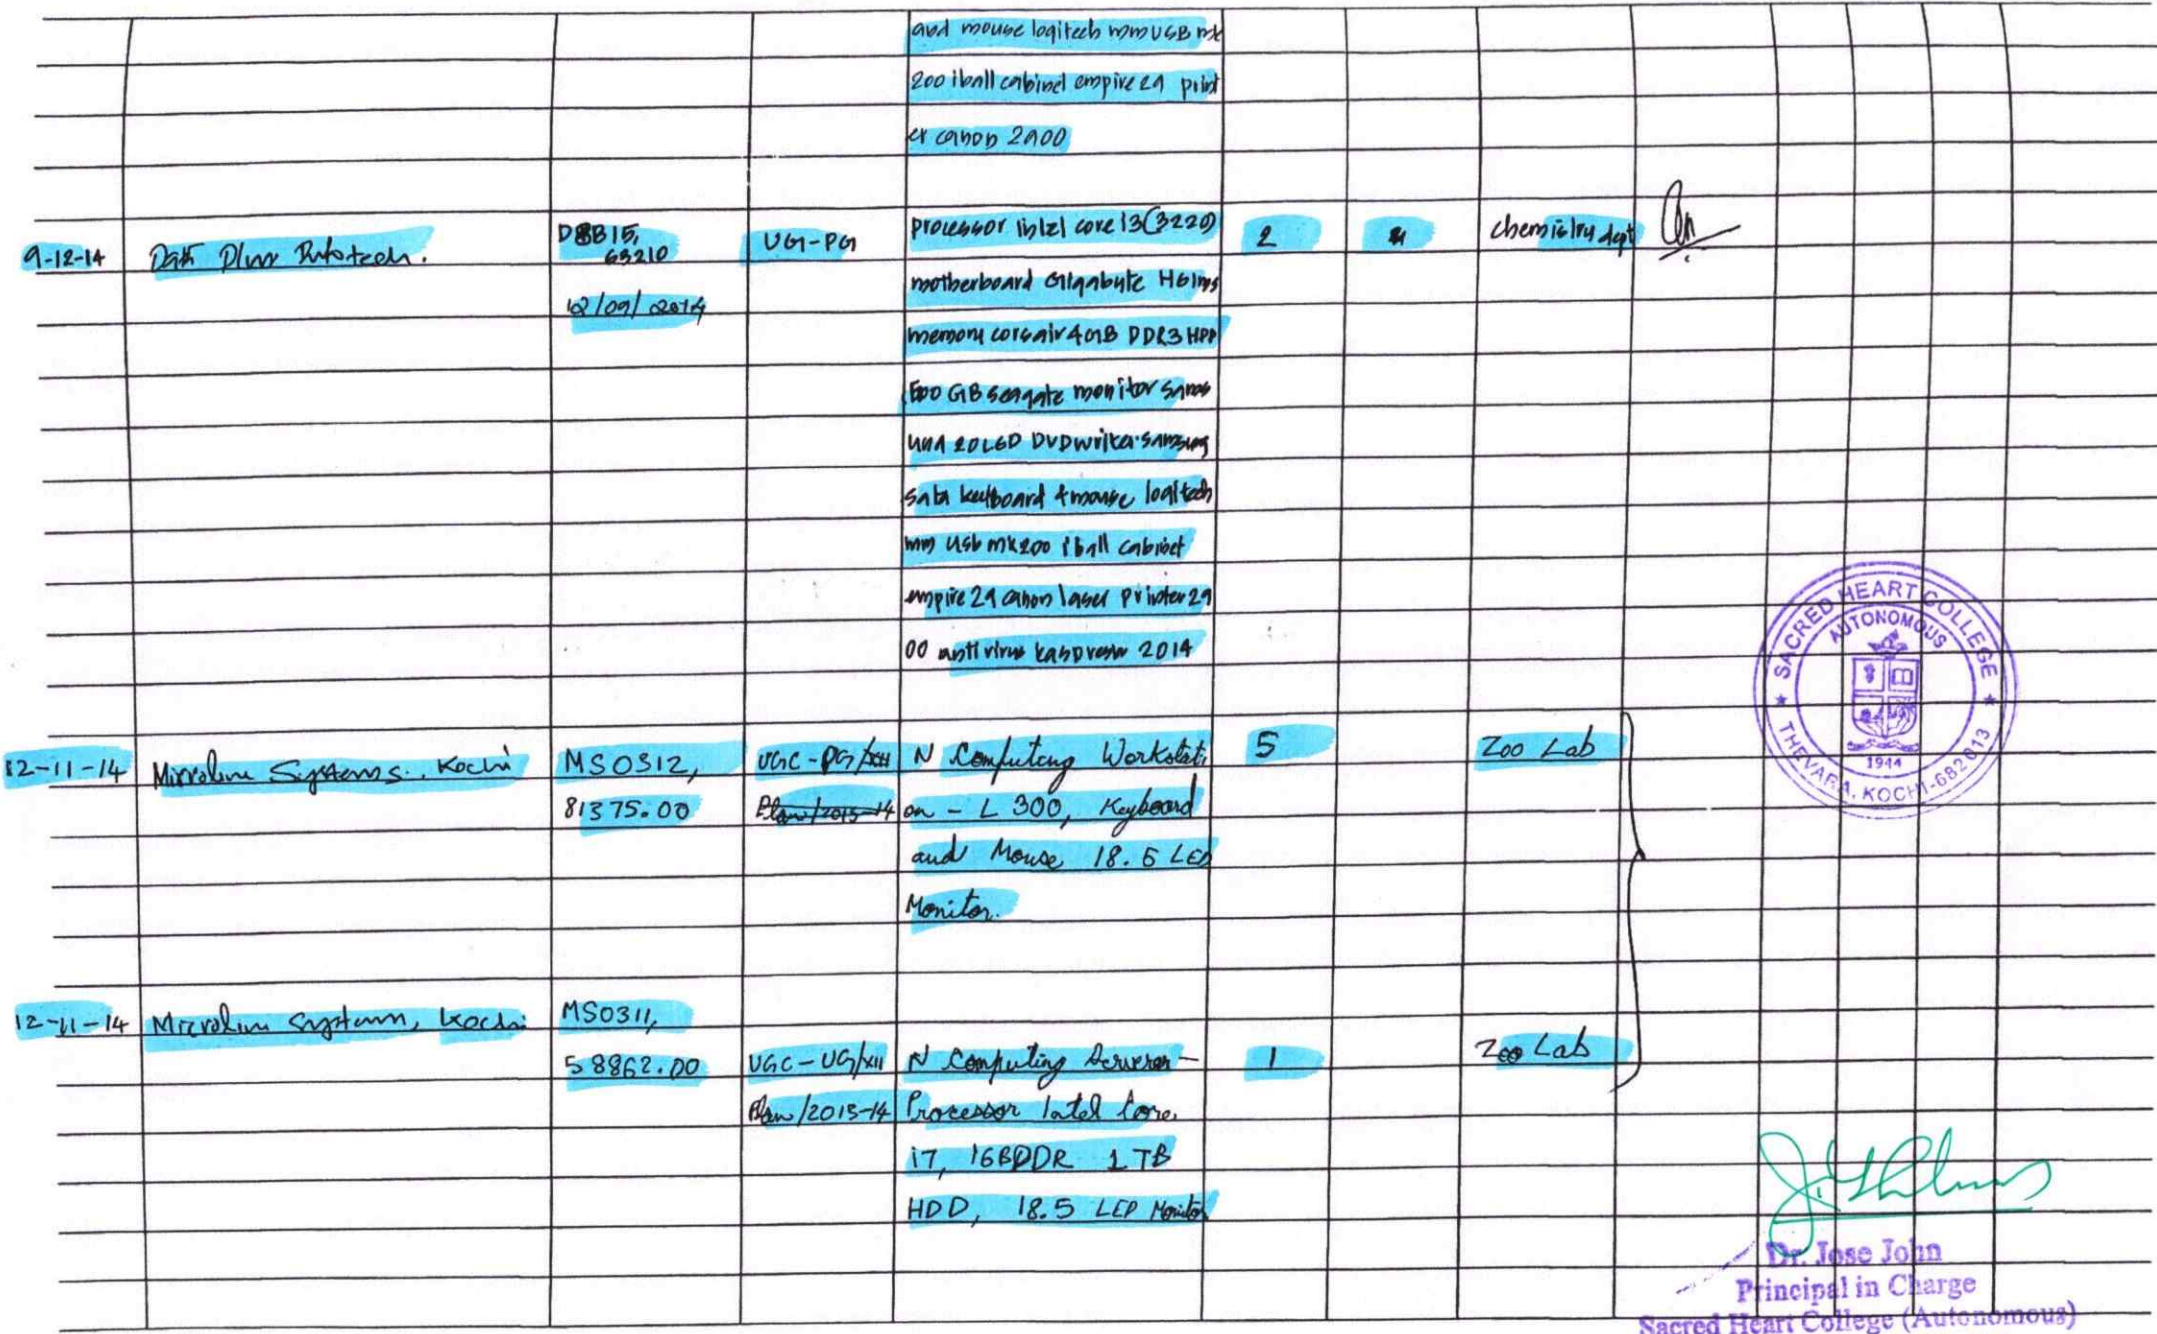 and mouse logitech mm USB mk
200 iball cabinet empire 29 print
er canon 2900
9-12-14
Infotech.
DBB15,
63210
12/09/2014
UG-PG
processor intel core i3(3220)
motherboard Gigabyte H61ms
memory corsair 4GB DDR3 HDD
500 GB seagate monitor sams
ung 20 LED DVD writer samsung
sata keyboard & mouse logitech
mm usb mk200 iball cabinet
empire 29 canon laser printer 29
00 anti virus 2014
2
chemistry dept
12-11-14
Systems, Kochi
MS0312,
81375.00
UGC-PG/XII
Plan/2013-14
N Computing Workstati
on - L 300, Keyboard
and Mouse 18.5 LED
Monitor.
5
Zoo Lab
12-11-14
System, Kochi
MS0311,
58862.00
UGC-UG/XII
Plan/2013-14
N Computing
Processor Intel Core
i7, 16BDDR 1 TB
HDD, 18.5 LED Monitor
1
Zoo Lab
SACRED HEART COLLEGE
AUTONOMOUS
1944
THEVARA, KOCHI-682 013
Dr. Jose John
Principal in Charge
Sacred Heart College (Autonomous)